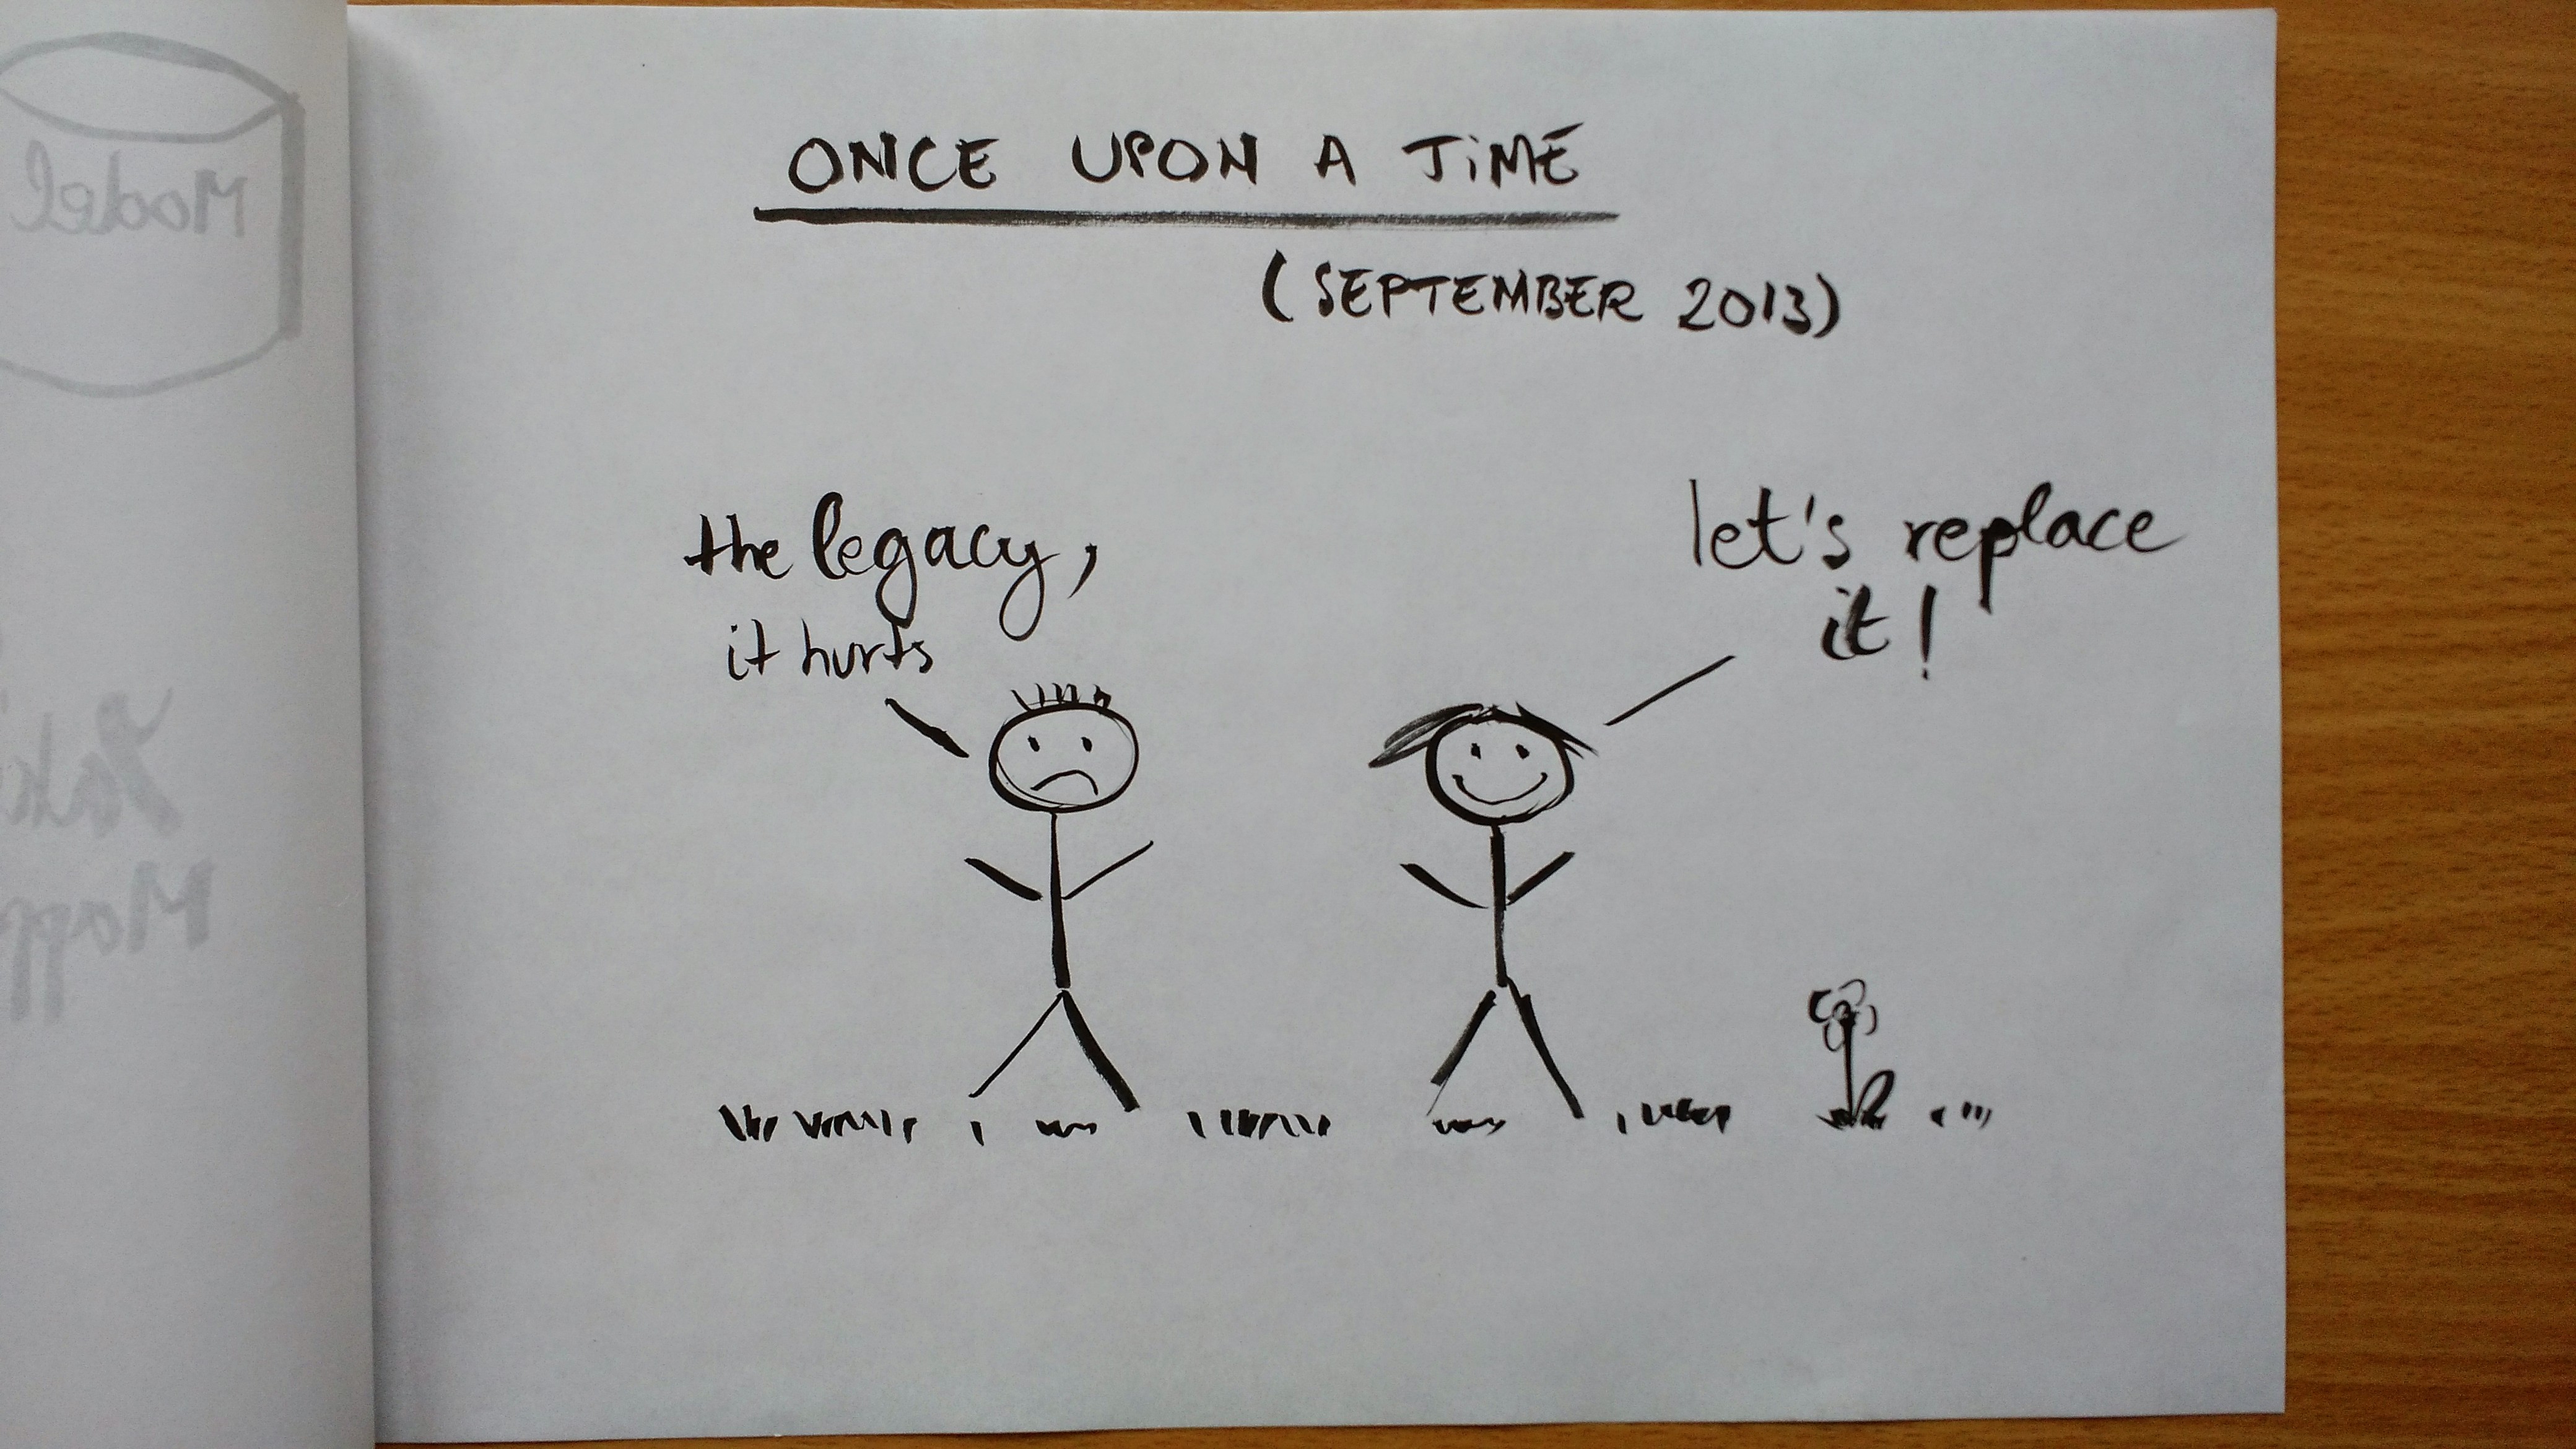 Model
ONCE UPON A TiME
(SEPTEMBER 2013)
the legacy,
it hurts
let's replace
it!